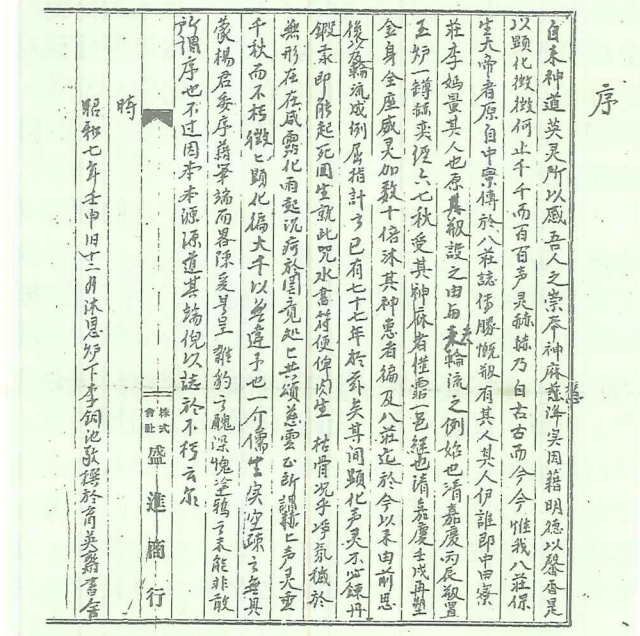 序
自来神道英灵所以感吾人之崇奉神麻慈洋实因藉明德以馨香是
以顕化徴徴何止千千而百百声灵赫赫乃自古古而今今惟我八莊保
生大帝者原自中寮傳於八莊誌倡勝慨叛有其人其人伊誰即中田寮
莊李媽量其人也原其叛設之由与夫輪流之例始也清嘉慶丙辰叛置
玉炉一鐏赫奕经六七秋受其神麻者僅霑一邑經也清嘉慶壬戌再塑
金身全座感灵加数十倍沐其神惠者徧及八莊迄於今以来由前思
後以及輪流成例屈指計之已有七十七年於茲矣其间顕化声灵不必鍊丹
鍛汞即能起死回生就此咒水書符便俾肉生枯骨况乎呼氛穢於
無形在在咸霑化雨起沉疴於罔竟処匕共頌慈雲正所謂赫匕声灵垂
千秋而不朽徴匕顕化徧大千以無違予也一介儒生实空疎之無具
蒙楊君委序藉筆端而畧陳爰是呈雜豹之醜深愧塗鴉之未能非敢
所謂序也不过因本本源源道其端倪以誌於不朽云尔
時
昭和七年壬申旧十二月沐恩炉下李銅池敬撰於育英齋書舍
株式會社 盛進商行